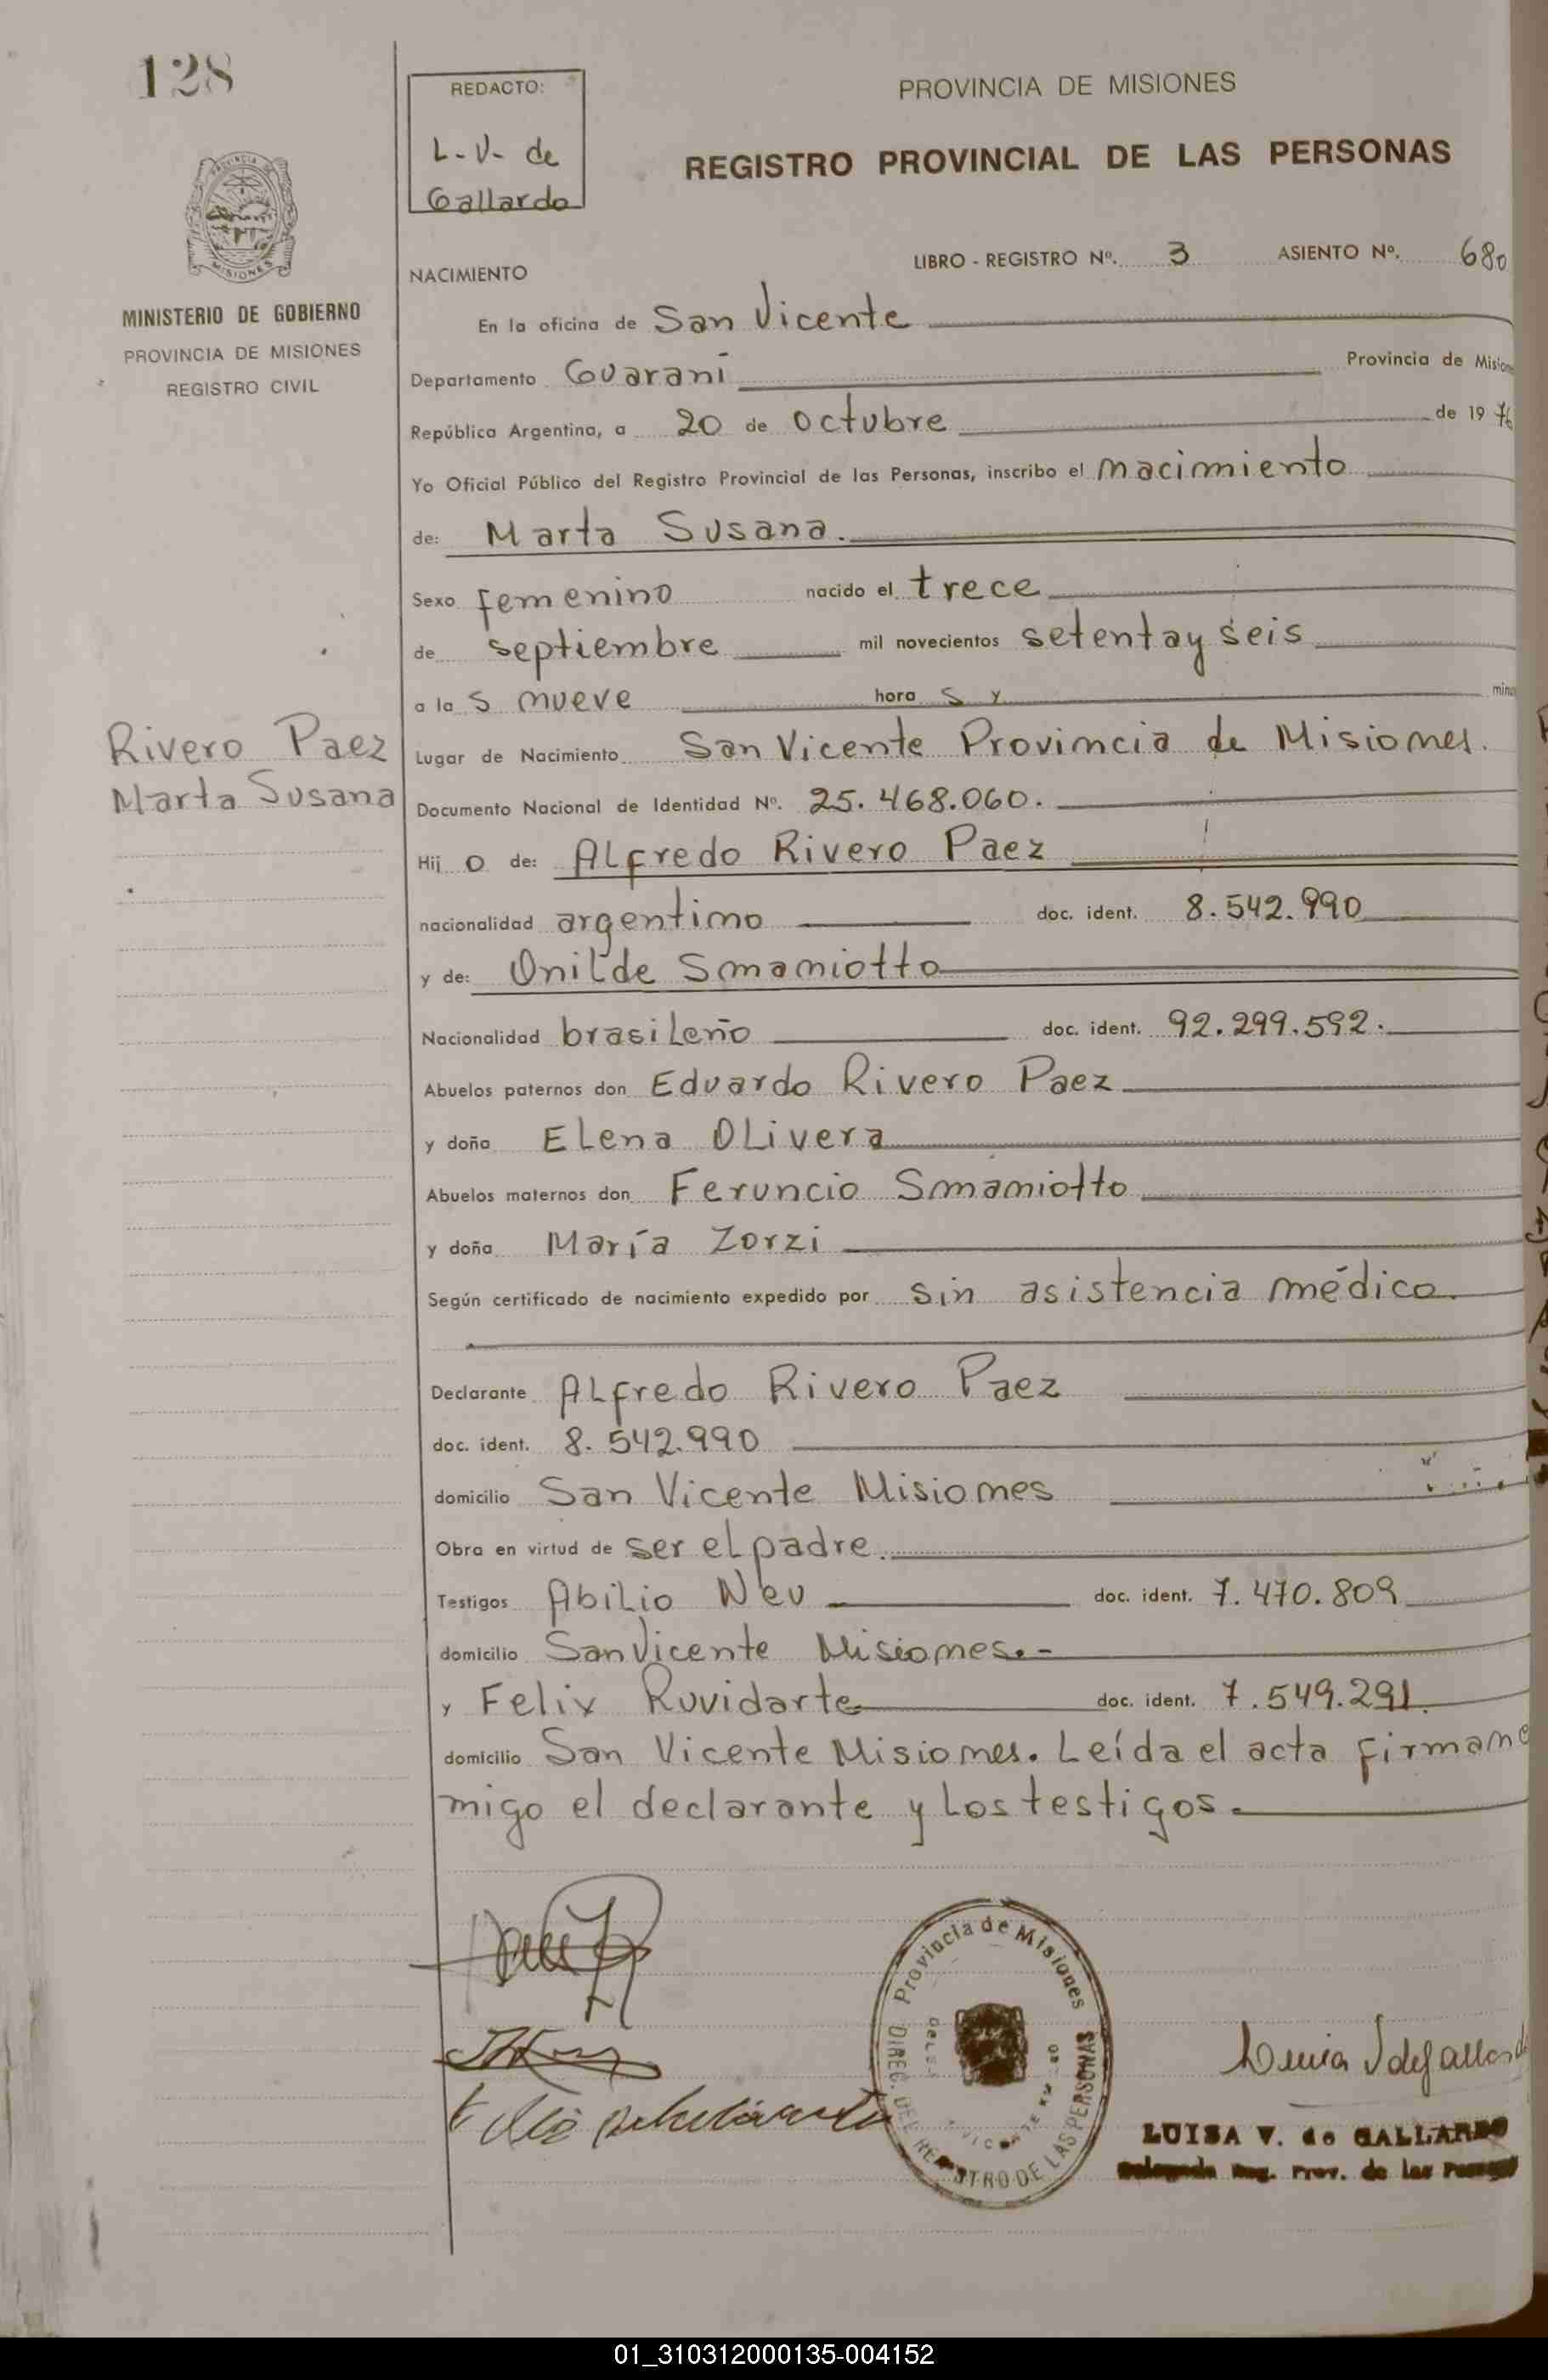 128
REDACTO:
L-V- de
Gallardo
PROVINCIA DE MISIONES
REGISTRO PROVINCIAL DE LAS PERSONAS
MINISTERIO DE GOBIERNO
PROVINCIA DE MISIONES
REGISTRO CIVIL
NACIMIENTO
LIBRO - REGISTRO Nº. 3 ASIENTO Nº. 680
En la oficina de San Vicente
Departamento Guaraní Provincia de Mision
República Argentina, a 20 de octubre de 19 76
Yo Oficial Público del Registro Provincial de las Personas, inscribo el nacimiento
de: Marta Susana.
Sexo femenino nacido el trece
de septiembre mil novecientos setenta y seis
a la s nueve hora s y minu
Rivero Paez
Marta Susana
Lugar de Nacimiento San Vicente Provincia de Misiones.
Documento Nacional de Identidad Nº. 25.468.060.
Hij o de: Alfredo Rivero Paez
nacionalidad argentino doc. ident. 8.542.990
y de: Onilde Smaniotto
Nacionalidad brasileño doc. ident. 92.299.592.
Abuelos paternos don Eduardo Rivero Paez
y doña Elena Olivera
Abuelos maternos don Feruncio Smaniotto
y doña María Zorzi
Según certificado de nacimiento expedido por sin asistencia médica.
Declarante Alfredo Rivero Paez
doc. ident. 8.542.990
domicilio San Vicente Misiones
Obra en virtud de ser el padre.
Testigos Abilio Neu doc. ident. 7.470.809
domicilio San Vicente Misiones.-
y Felix Ruvidarte doc. ident. 7.549.291.
domicilio San Vicente Misiones. Leída el acta firman c
migo el declarante y los testigos.
Provincia de Misiones
DIREC. DEL REGISTRO DE LAS PERSONAS
LUISA V. de GALLARDO
Delegada Reg. Prov. de las Personas
01_310312000135-004152